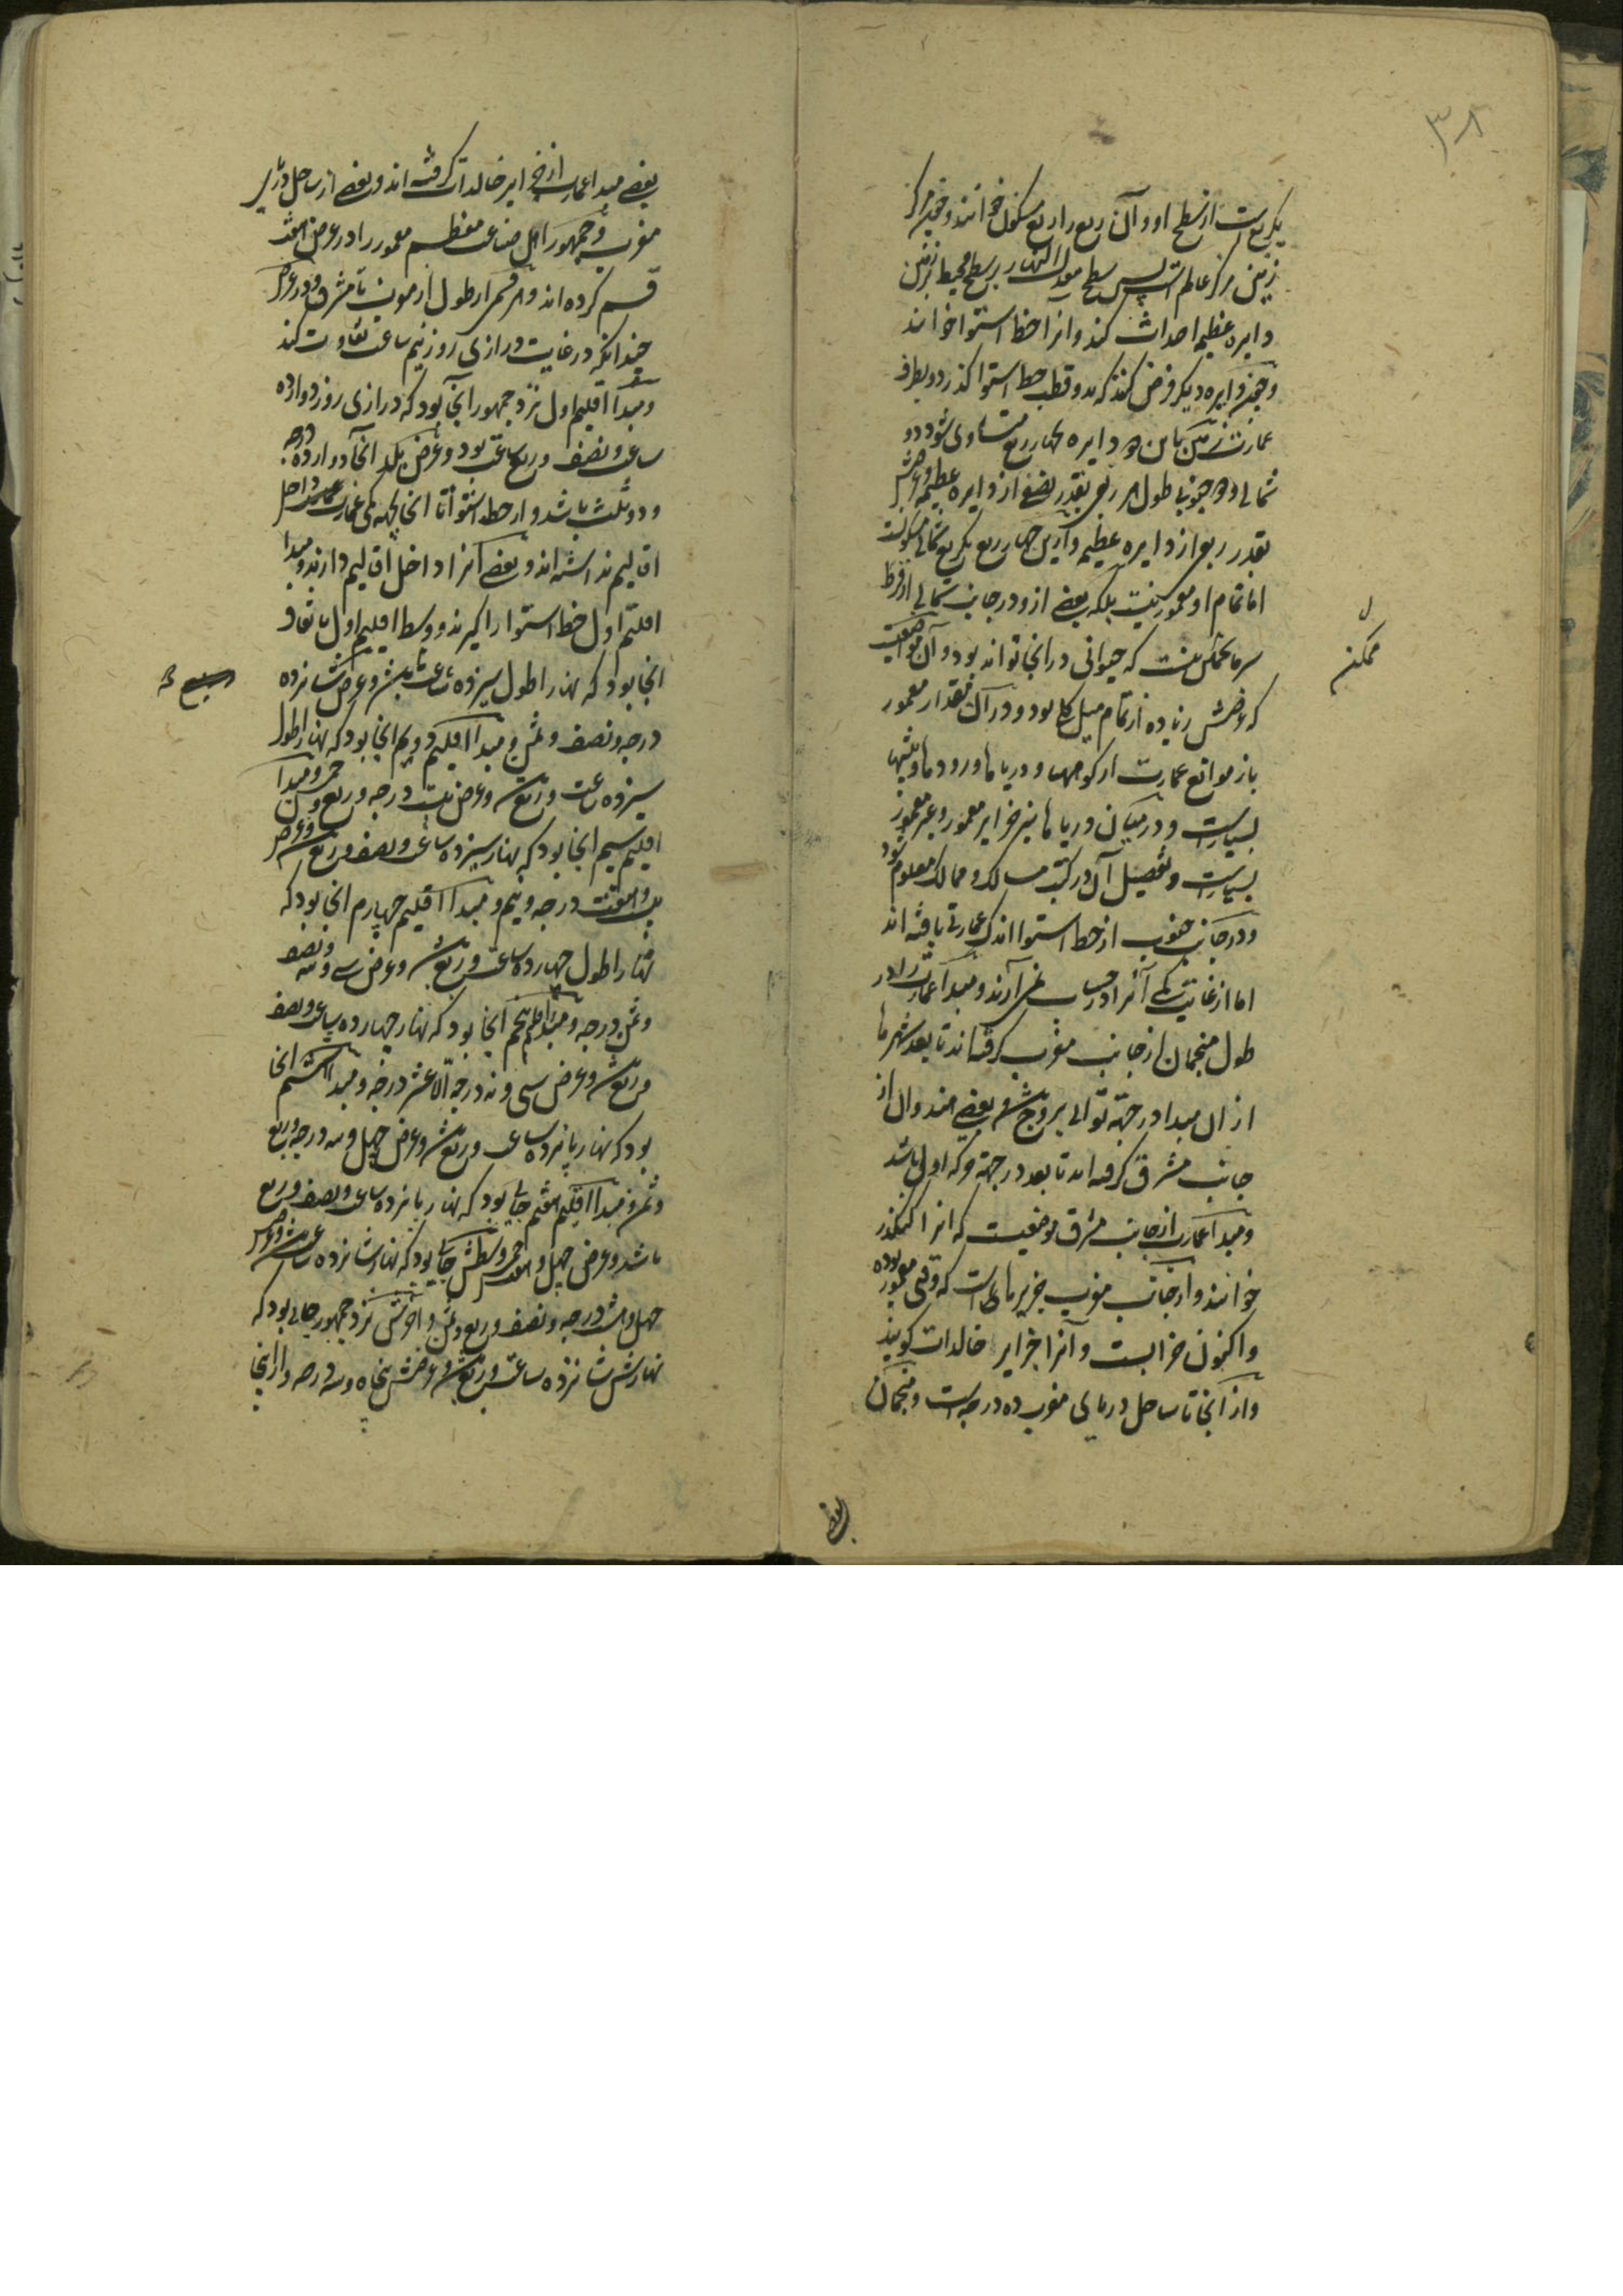 ٣٨
یکربعست از سطح او و آن ربع را ربع مسکون خوانند و چون مرکز
زمین مرکز عالم است پس سطح معدل النهار بر سطح محیط زمین
دایره عظیمه احداث کند و آنرا خط استوا خوانند
و چون دایره دیکر فرض کنند که بدو قطب خط استوا کذرد و بطرف
عمارت زمین باین دو دایره بچهار ربع متساوی شود دو
شمالی و دو جنوبی طول هر ربعی بقدر نصفی از دایره عظیمه و عرضش
بقدر ربع از دایره عظیمه و ازین چهار ربع یکربع شمالی مسکونست
اما تمام او معمور نیست بلکه بعضی ازو در جانب شمالی از فرط
سرما ممکن نیست که حیوانی در آنجا تواند بود و آن مواضعیست
ممکن
که عرضش زیاده از تمام میل کلی بود و در آن مقدار معمور
باز موانع عمارت از کوهها و دریاها و رودها و بیشها
بسیارست و در میان دریاها نیز جزایر معمور و غیر معمور
بسیارست و تفصیل آن در کتب مسالک و ممالک معلوم شود
و در جانب جنوب از خط استوا اندک عمارتی یافته اند
اما از غایت کمی آنرا در حساب نمی آرند و مبدا عمارت را در
طول منجمان از جانب مغرب کرفته اند تا بعد شهرها
از ان مبدا در جهة توالی بروج باشد و بعضی هندوان از
جانب مشرق کرفته اند تا بعد در جهة حرکه اولی باشد
و مبدا عمارت از جانب مشرق موضعیست که انرا کنکدز
خوانند و از جانب مغرب جزیرهاییست که وقتی معمور بوده
و اکنون خرابست و آنرا جزایر خالدات کویند
و از آنجا تا ساحل دریای مغرب ده درجه است و منجمان
بعضی
بعضی مبدا عمارت از جزایر خالدات کرفته اند و بعضی از ساحل دریای
مغرب و جمهور اهل صناعت معظم معمور را در عرض بهفت
قسم کرده اند و هر قسمی از طول از مغرب تا مشرق و در عرض
چندانکه در غایت درازی روز نیم ساعت تفاوت کند
و مبدا اقلیم اول نزد جمهور آنجا بود که درازی روز دوازده
ساعت و نصف و ربع ساعت بود و عرض بلد آنجا دوازده درجه
و دو ثلث باشد و از خط استوا تا آنجا بجهة کمی عمارت داخل
اقالیم نداشته اند و بعضی آنرا داخل اقالیم دارند و مبدا
اقلیم اول خط استوا را کیرند و وسط اقلیم اول باتفاق
آنجا بود که نهار را طول سیزده ساعت باشد و عرض شانزده
درجه و نصف و ثمن و مبدا اقلیم دویم آنجا بود که نهار را طول
سیزده ساعت و ربعی و عرض بیست درجه و ربع و خمس و مبدا
اقلیم سیم آنجا بود که نهار سیزده ساعت و نصف و ربع و عرض
بیست و هفت درجه و نیم و مبدا اقلیم چهارم آنجا بود که
نهار را طول چهارده ساعت و ربعی و عرض سی و سه و نصف
و ثمن درجه و مبدا اقلیم پنجم آنجا بود که نهار چهارده ساعت و نصف
و ربعی و عرض سی و نه درجه الا عشر درجه و مبدا ششم آنجا
بود که نهار پانزده ساعت و ربعی و عرض چهل و سه درجه و ربع
و ثمن و مبدا اقلیم هفتم جایی بود که نهار پانزده ساعت و نصف و ربع
باشد و عرض چهل و هفت و خمس و وسطش جایی بود که نهار شانزده ساعت و عرض
چهل و هشت درجه و نصف و ربع و ثمن و آخرش نزد جمهور جایی بود که
نهارش شانزده ساعت و ربعی و عرضش پنجاه و سه درجه و از آنجا